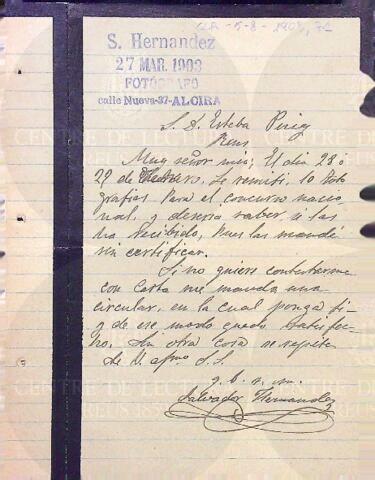 S. Hernandez
27 MAR. 1903
FOTÓGRAFO
calle Nueva-37-ALCIRA
S. D. Esteba
Reus
Muy señor mio; El dia 28 ó
29 de le remiti, 10 foto
grafias para el concurso nacio
nal, y desearia saber si las
ha recibido, pues las mandé
sin certificar.
Si no quiere contestarme
con carta me manda una
circular, en la cual ponga si
y de ese modo quedo satisfe
cho. Sin otra cosa se repite
de V. afmo. S.S.
q. b. s. m.
Salvador Hernandez